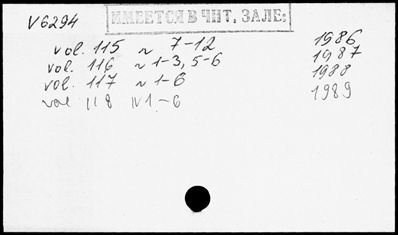 V6294
ИМЕЕТСЯ В ЧНТ, ЗАЛЕ:
vol. 115 N 7-12 1986
vol. 116 N 1-3, 5-6 1987
vol. 117 N 1-6 1988
vol 118 N 1-6 1989